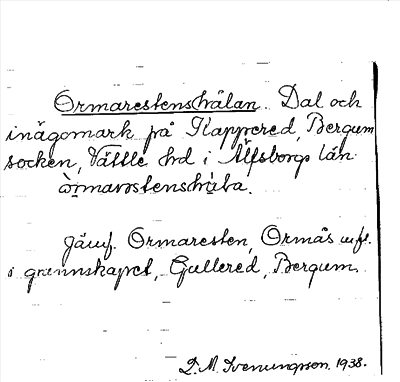 Ormarestenshålan. Dal och
inägomark på Kappered, Bergum
socken, Vättle hd i Älfsborgs län
òrmarostenshɷ̀la.
Jämf. Ormaresten, Ormås m.fl.
i grannskapet, Gullered, Bergum.
D. M. Svenungsson. 1938.